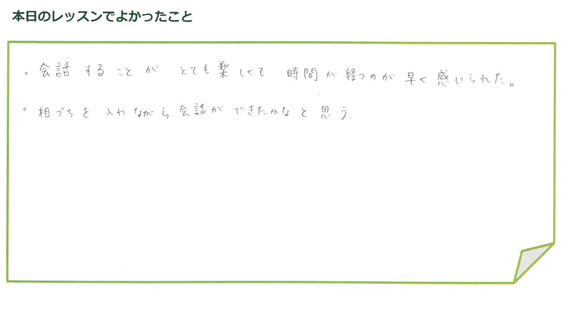 本日のレッスンでよかったこと
。会話することが とても楽しくて 時間が経つのが早く感じられた。
。相づちを入れながら会話ができたかなと思う.